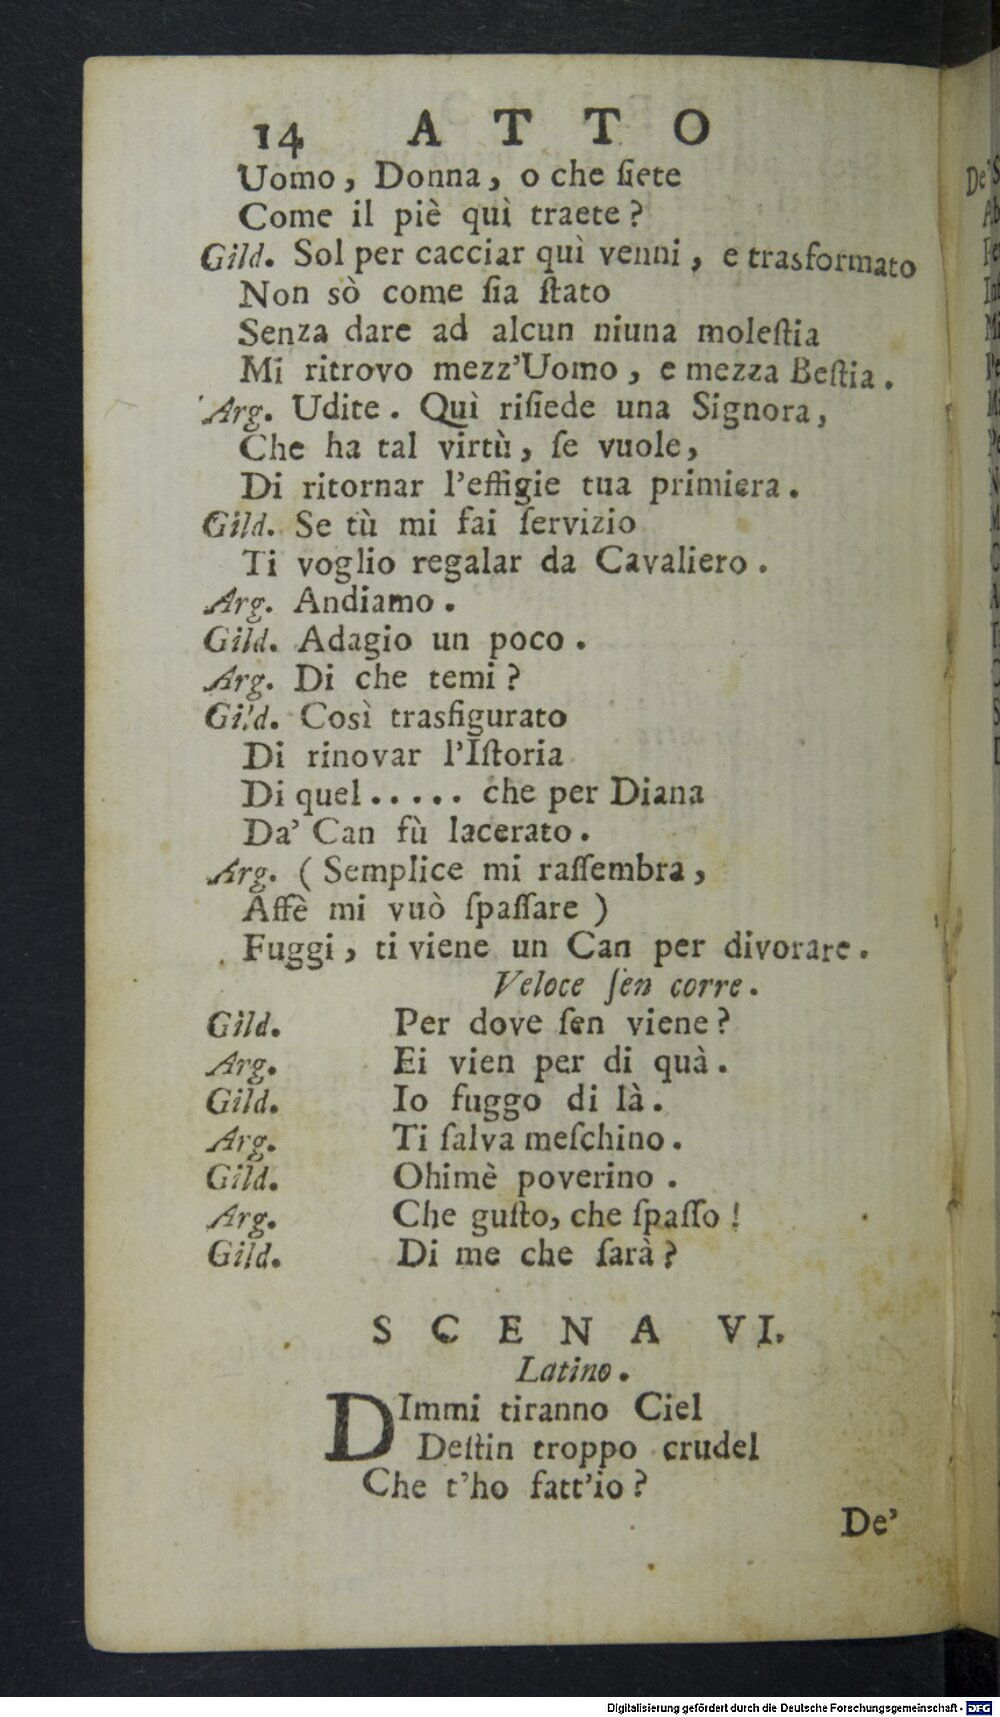 14 ATTO
Uomo, Donna, o che ſiete
Come il piè quì traete?
Gild. Sol per cacciar quì venni, e trasformato
Non sò come ſia ſtato
Senza dare ad alcun niuna moleſtia
Mi ritrovo mezz'Uomo, e mezza Beſtia.
Arg. Udite. Quì riſiede una Signora,
Che ha tal virtù, ſe vuole,
Di ritornar l'effigie tua primiera.
Gild. Se tù mi fai ſervizio
Ti voglio regalar da Cavaliero.
Arg. Andiamo.
Gild. Adagio un poco.
Arg. Di che temi?
Gild. Così trasfigurato
Di rinovar l'Iſtoria
Di quel..... che per Diana
Da' Can fù lacerato.
Arg. (Semplice mi raſſembra,
Affè mi vuò ſpaſſare)
Fuggi, ti viene un Can per divorare.
Veloce ſen corre.
Gild. Per dove ſen viene?
Arg. Ei vien per di quà.
Gild. Io fuggo di là.
Arg. Ti ſalva meſchino.
Gild. Ohimè poverino.
Arg. Che guſto, che ſpaſſo!
Gild. Di me che ſarà?
SCENA VI.
Latino.
DImmi tiranno Ciel
Deſtin troppo crudel
Che t'ho fatt'io?
De'
Digitalisierung gefördert durch die Deutsche Forschungsgemeinschaft - DFG